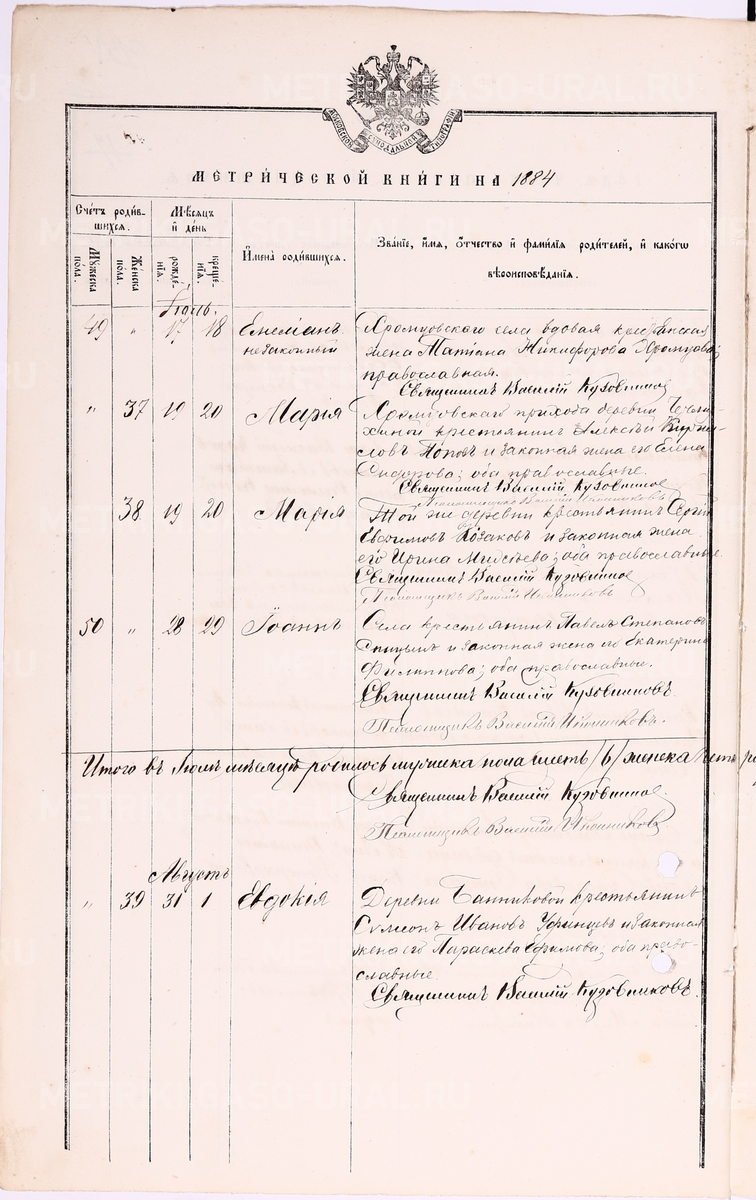 МОСКОВСКОЙ СѴНОДАЛЬНОЙ ТИПОГРАФІИ
METRIKI.GASO-URAL.RU
МЕТРИ́ЧЕСКОЙ КНИ́ГИ НА 1884
Сче́тъ роди́в-
шихся.
Му́жеска
пола.
Же́нска
пола.
Мѣ́сяцъ
и де́нь
рожде-
нія.
креще-
нія.
И҆мена̀ роди́вшихся.
Зва́ніе, и҆́мя, ѻ҆́тчество и҆ фами́лія роди́телей, и҆ како́гѡ
вѣроисповѣ́данія.
Іюль.
49 " 17 18
незаконный
Хромцовскаго села вдовая крестьянская
жена Татіана Никифорова Хромцова;
православная.
Священникъ Василій Кузовников
" 37 19 20 Марія
прихода деревни
крестьянинъ Алексѣй
Поповъ и законная жена его Елена
Сидорова; оба православные.
Священникъ Василій Кузовников
Псаломщикъ Василій Иконниковъ
38 19 20 Марія
Той же деревни крестьянинъ Сергій
Евфимовъ Козаковъ и законная жена
его Ирина; оба православные.
Священникъ Василій Кузовников
Псаломщикъ Василій Иконниковъ
50 " 28 29 Іоаннъ
Села крестьянинъ Павелъ Степановъ
и законная жена его Екатерина
Филиппова; оба православные.
Священникъ Василій Кузовниковъ
Псаломщикъ Василій Иконниковъ.
Итого въ Іюлѣ мѣсяцѣ родилось мужеска пола шесть /6/ женска шесть
Священникъ Василій Кузовников
Псаломщикъ Василій Иконниковъ
Августъ
" 39 31 1 Евдокія
Деревни Банниковой крестьянинъ
Симеонъ Ивановъ и законная
жена его Параскева Ефимова; оба право-
славные.
Священникъ Василій Кузовниковъ.
METRIKI.GASO-URAL.RU